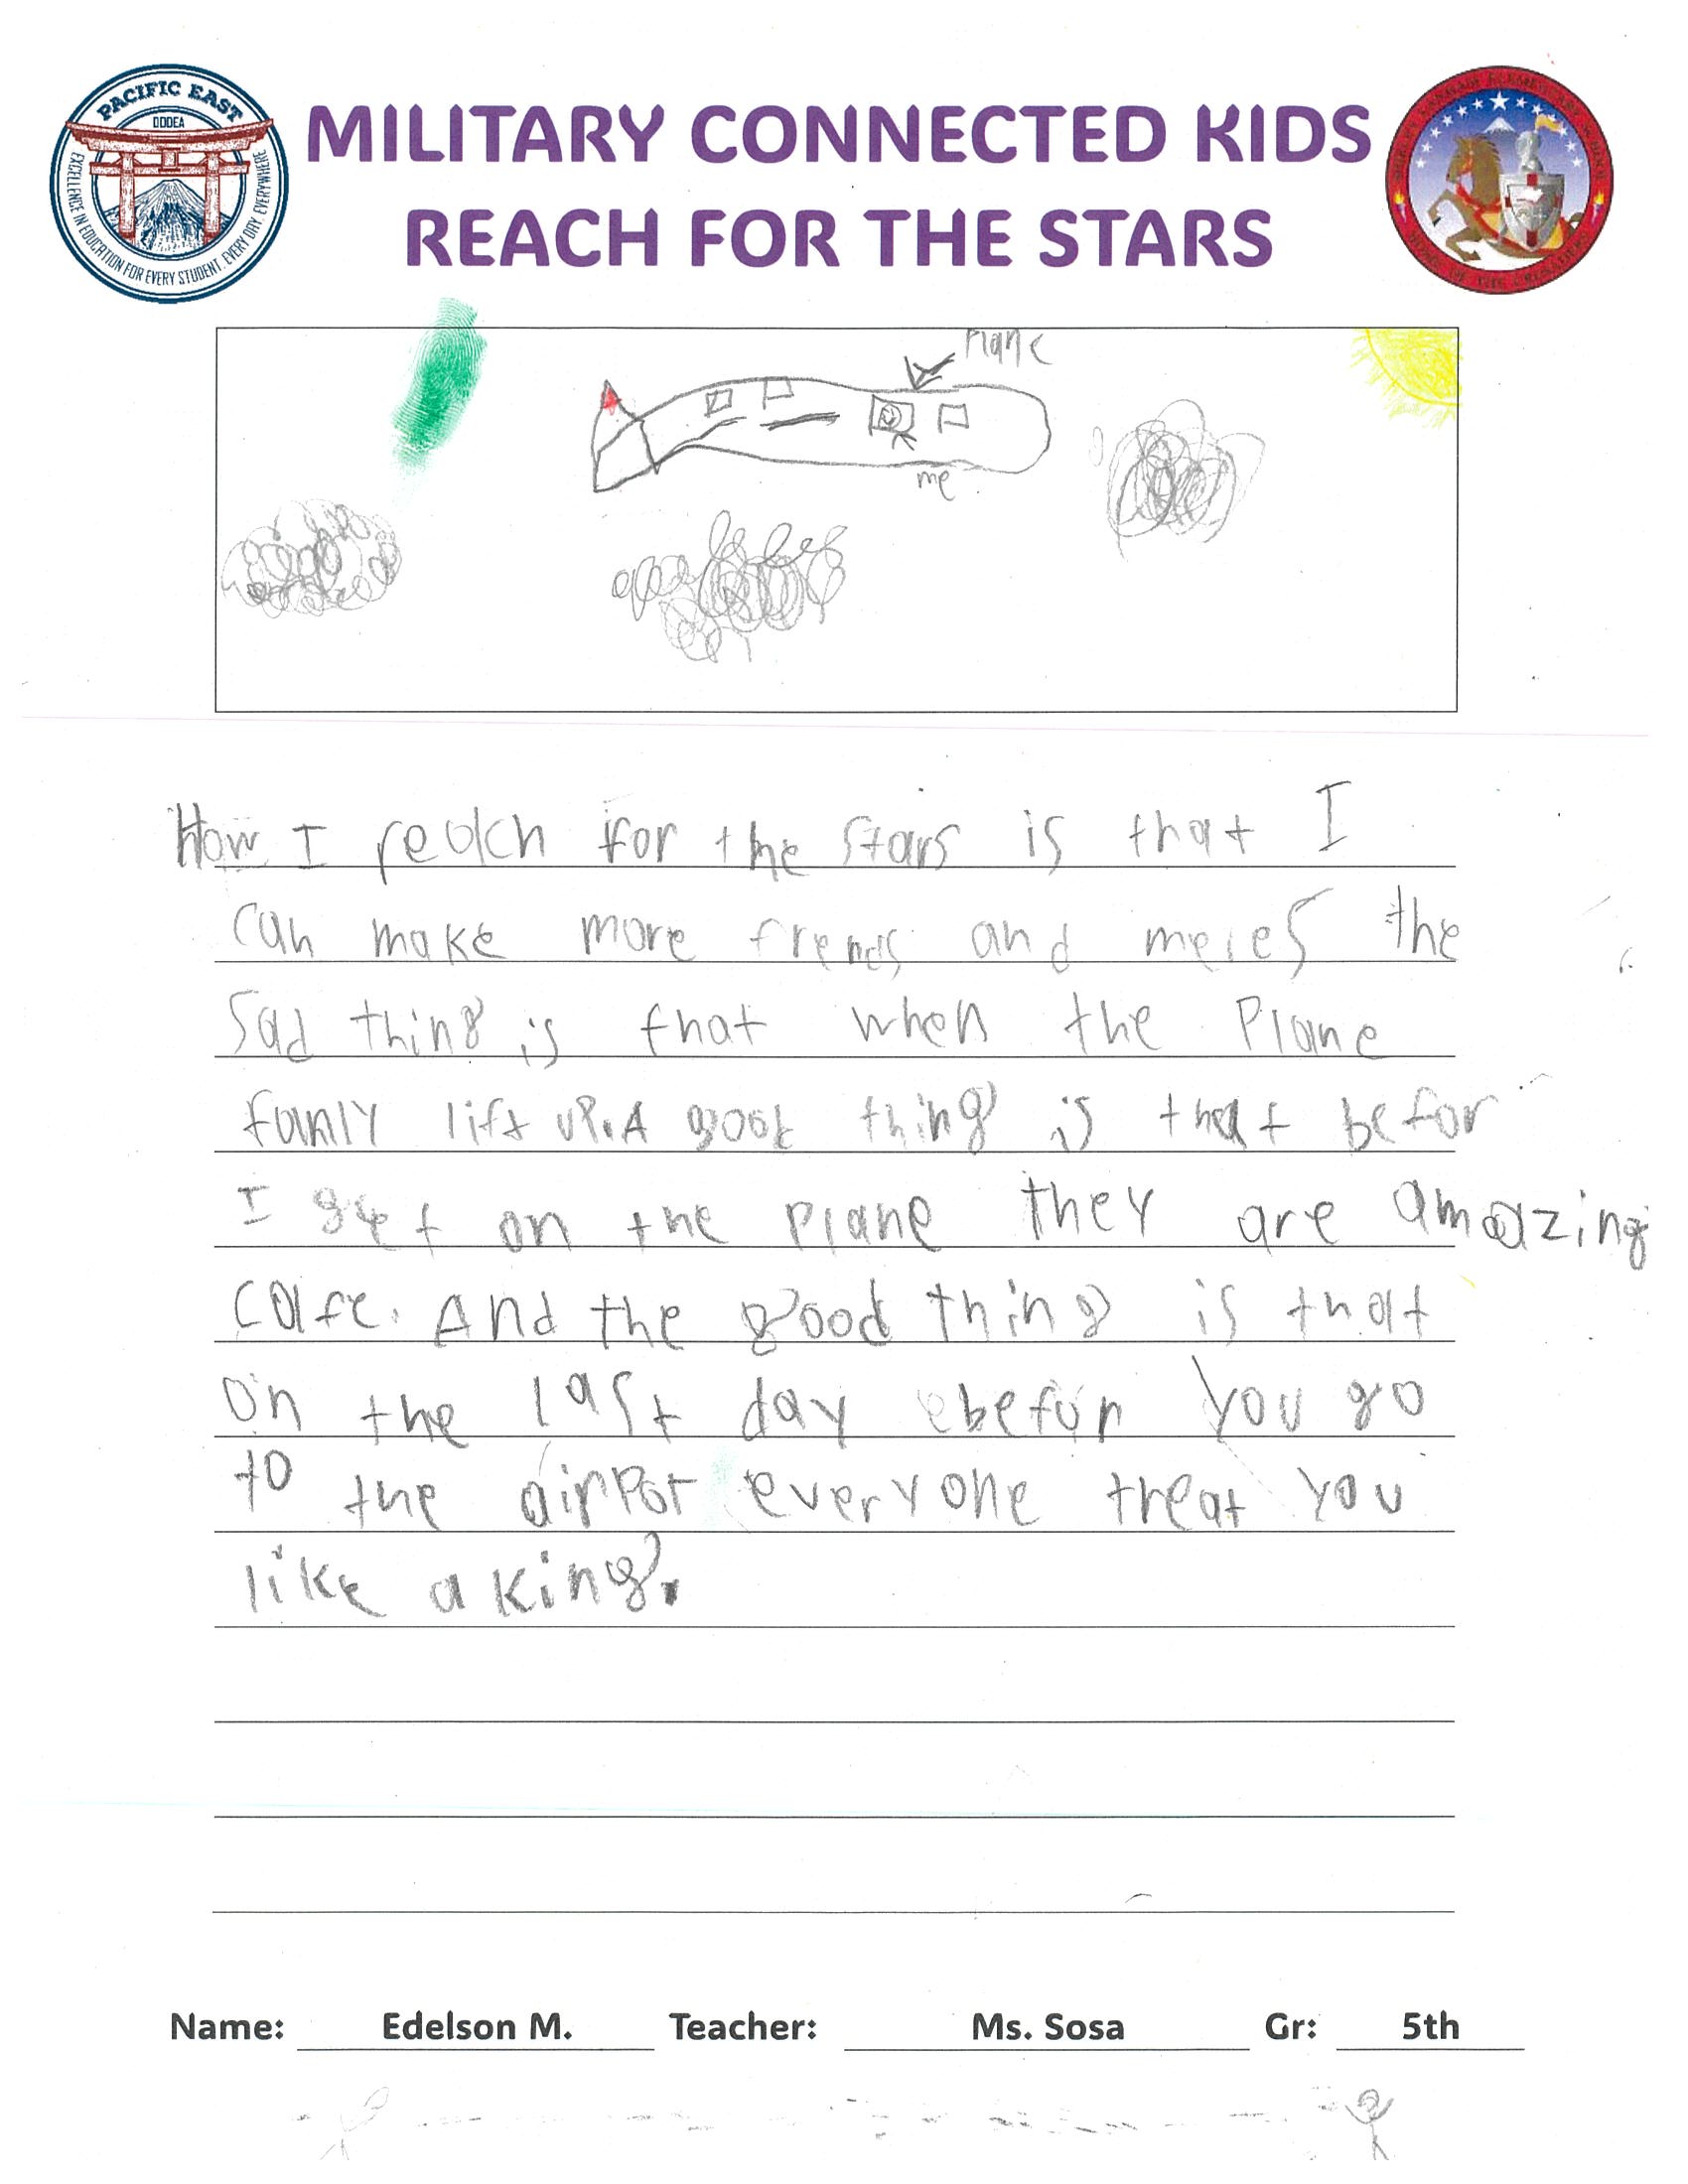 PACIFIC EAST
DODEA
EXCELLENCE IN EDUCATION FOR EVERY STUDENT, EVERY DAY, EVERYWHERE
MILITARY CONNECTED KIDS
REACH FOR THE STARS
Plane
me
How I reach for the stars is that I
can make more frends and the
Sad thing is that when the Plane
fanly lift uP. A good thing is that befor
I get on the Plane they are amazing
cafe. And the good thing is that
on the last day befor you go
to the airPot everyone treat you
like a king.
Name: Edelson M. Teacher: Ms. Sosa Gr: 5th